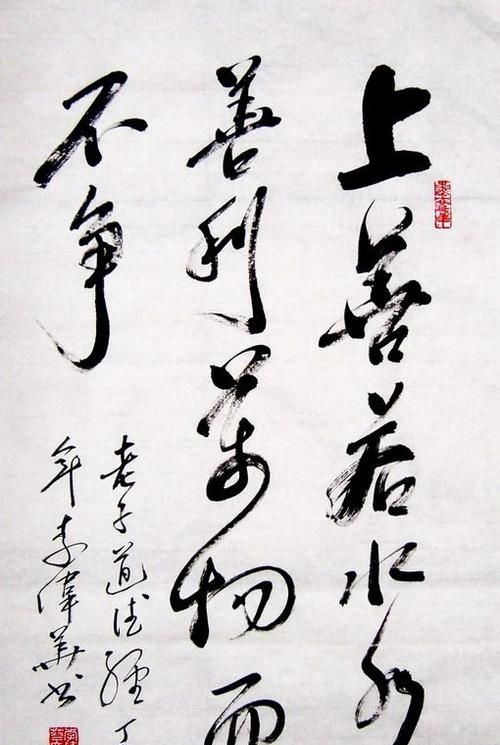 上善若水水
善利万物而
不争
老子道德经丁
年李伟华书